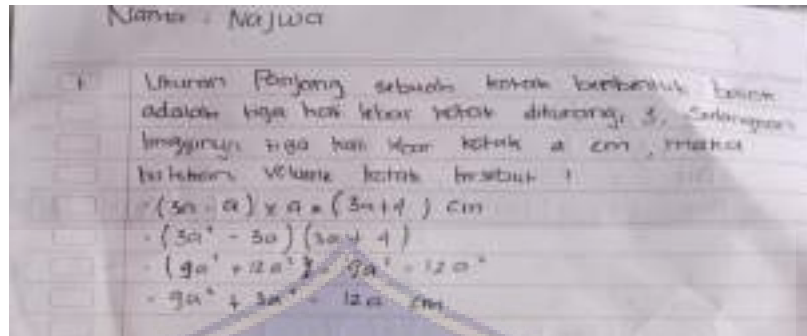 Nama : Najwa
1 Ukuran Panjang sebuah kotak berbentuk balok
adalah tiga kali lebar kotak dikurangi 3, Sedangkan
tingginya tiga kali lebar kotak a cm, maka
volume kotak tersebut !
(3a - a) x a = (3a+4) cm
(3a² - 3a) (3a + 4)
(9a³ + 12a²) - 9a² - 12a²
9a³ + 3a² - 12a cm